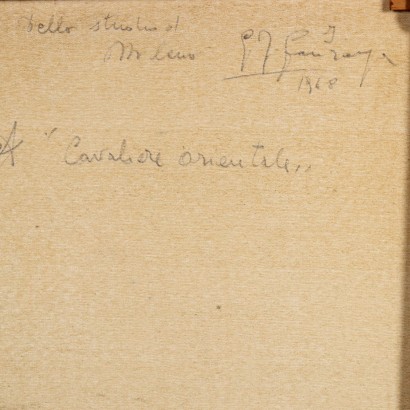 dello studio di
Milano
1968
A "Cavaliere orientale"